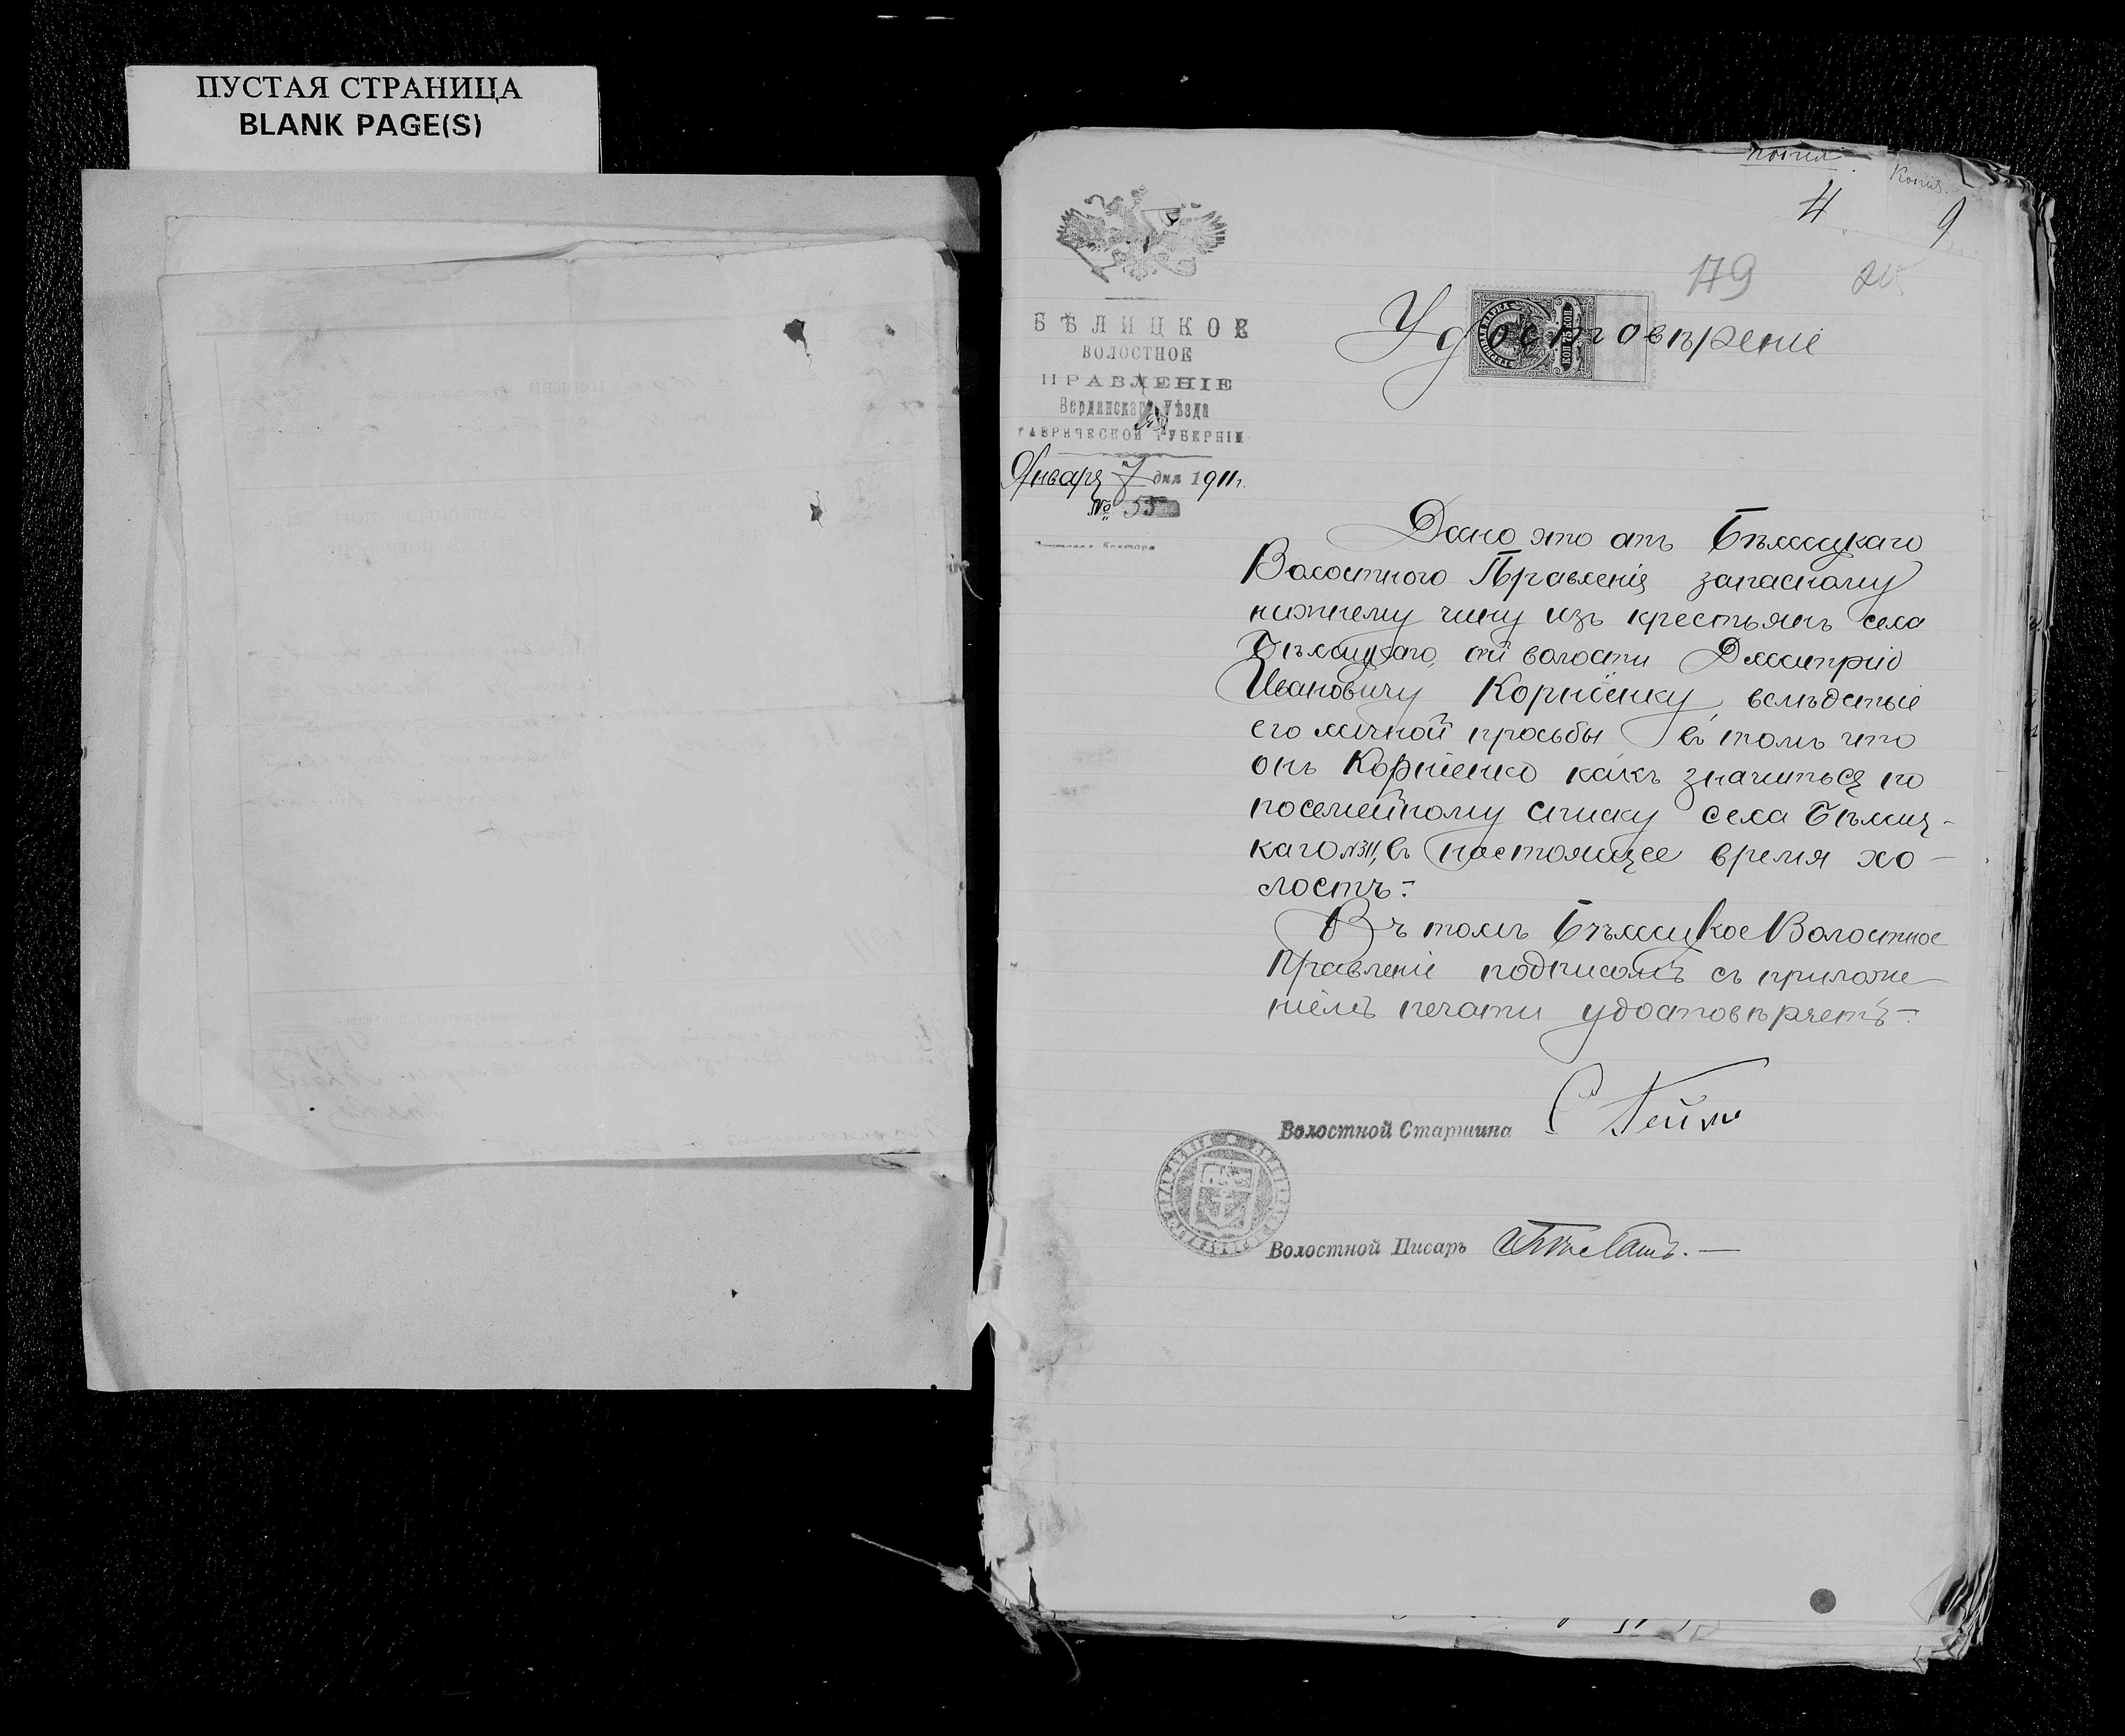 ПУСТАЯ СТРАНИЦА
BLANK PAGE(S)
Копия.
4 9
179
Удостовѣреніе
БѢЛИЦКОЕ
ВОЛОСТНОЕ
ПРАВЛЕНІЕ
Бердянскаго Уѣзда
ТАВРИЧЕСКОЙ ГУБЕРНІИ
Января 7 дня 1911 г.
№ 55
Дано это отъ Бѣлицкаго
Волостного Правленія запасному
нижнему чину изъ крестьянъ села
Бѣлицкаго, той волости Дмитрію
Ивановичу Корніенку, вслѣдстіе
его личной просьбы въ томъ что
онъ Корніенко какъ значиться по
посемейному списку села Бѣлиц-
каго №311, въ настоящее время хо-
лостъ.-
Въ томъ Бѣлицкое Волостное
Правленіе подписомъ съ приложе-
ніемъ печати удостовѣряетъ.-
Волостной Старшина
Волостной Писарь